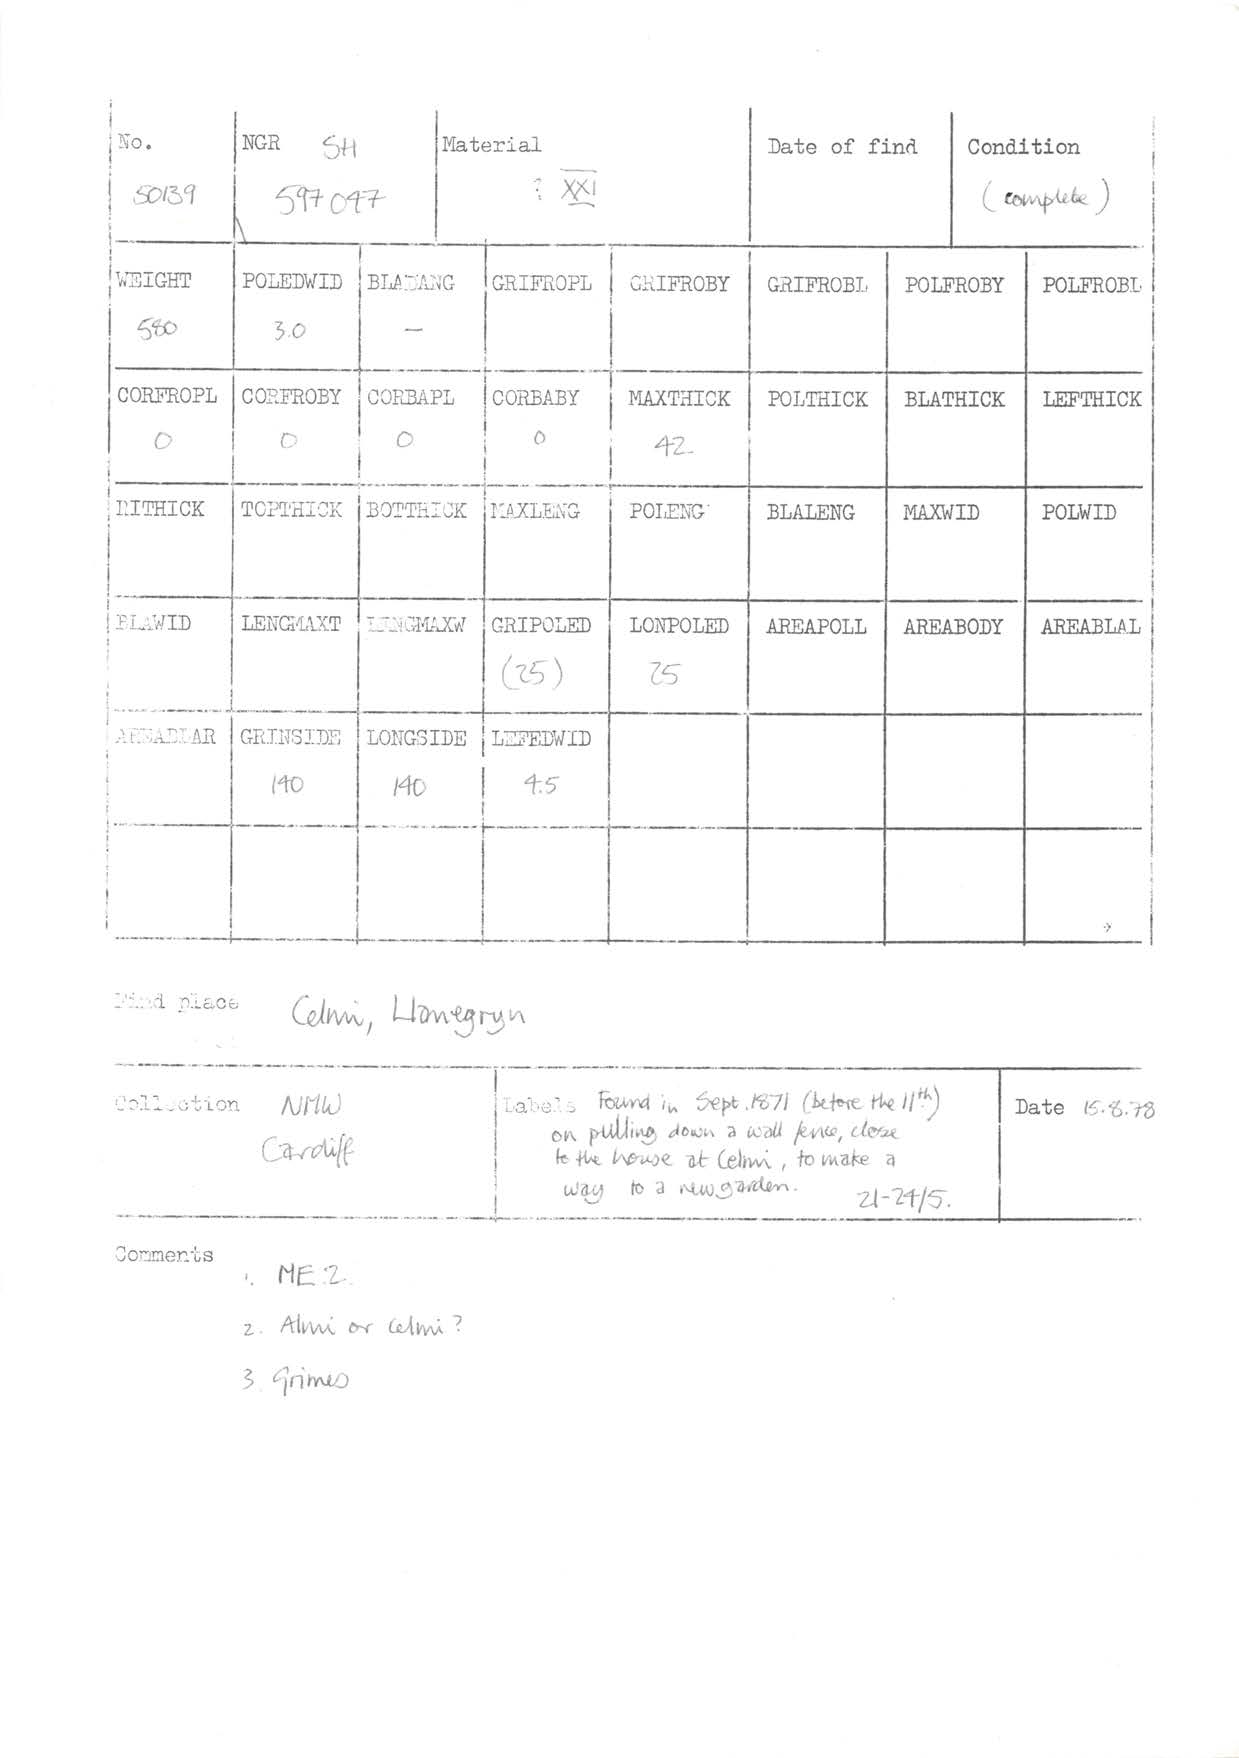 No. NGR SH Material Date of find Condition
50139 597 047 ? XXI (complete)
WEIGHT POLEDWID BLADANG GRIFROPL GRIFROBY GRIFROBL POLFROBY POLFROBL
580 3.0 –
CORFROPL CORFROBY CORBAPL CORBABY MAXTHICK POLTHICK BLATHICK LEFTHICK
0 0 0 0 42
RITHICK TOPTHICK BOTTHICK MAXLENG POLENG BLALENG MAXWID POLWID
BLAWID LENGMAXT LENGMAXW GRIPOLED LONPOLED AREAPOLL AREABODY AREABLAL
(25) 25
AREABLAR GRINSIDE LONGSIDE LEFEDWID
140 140 4.5
Find place Celmi, Llanegryn
Collection NMW Labels Found in Sept. 1871 (before the 11th) Date 15.8.78
on pulling down a wall fence, close
Cardiff to the house at Celmi, to make a
way to a new garden. 21-24/5.
Comments
1. ME 2.
2. Almi or Celmi?
3. Grimes